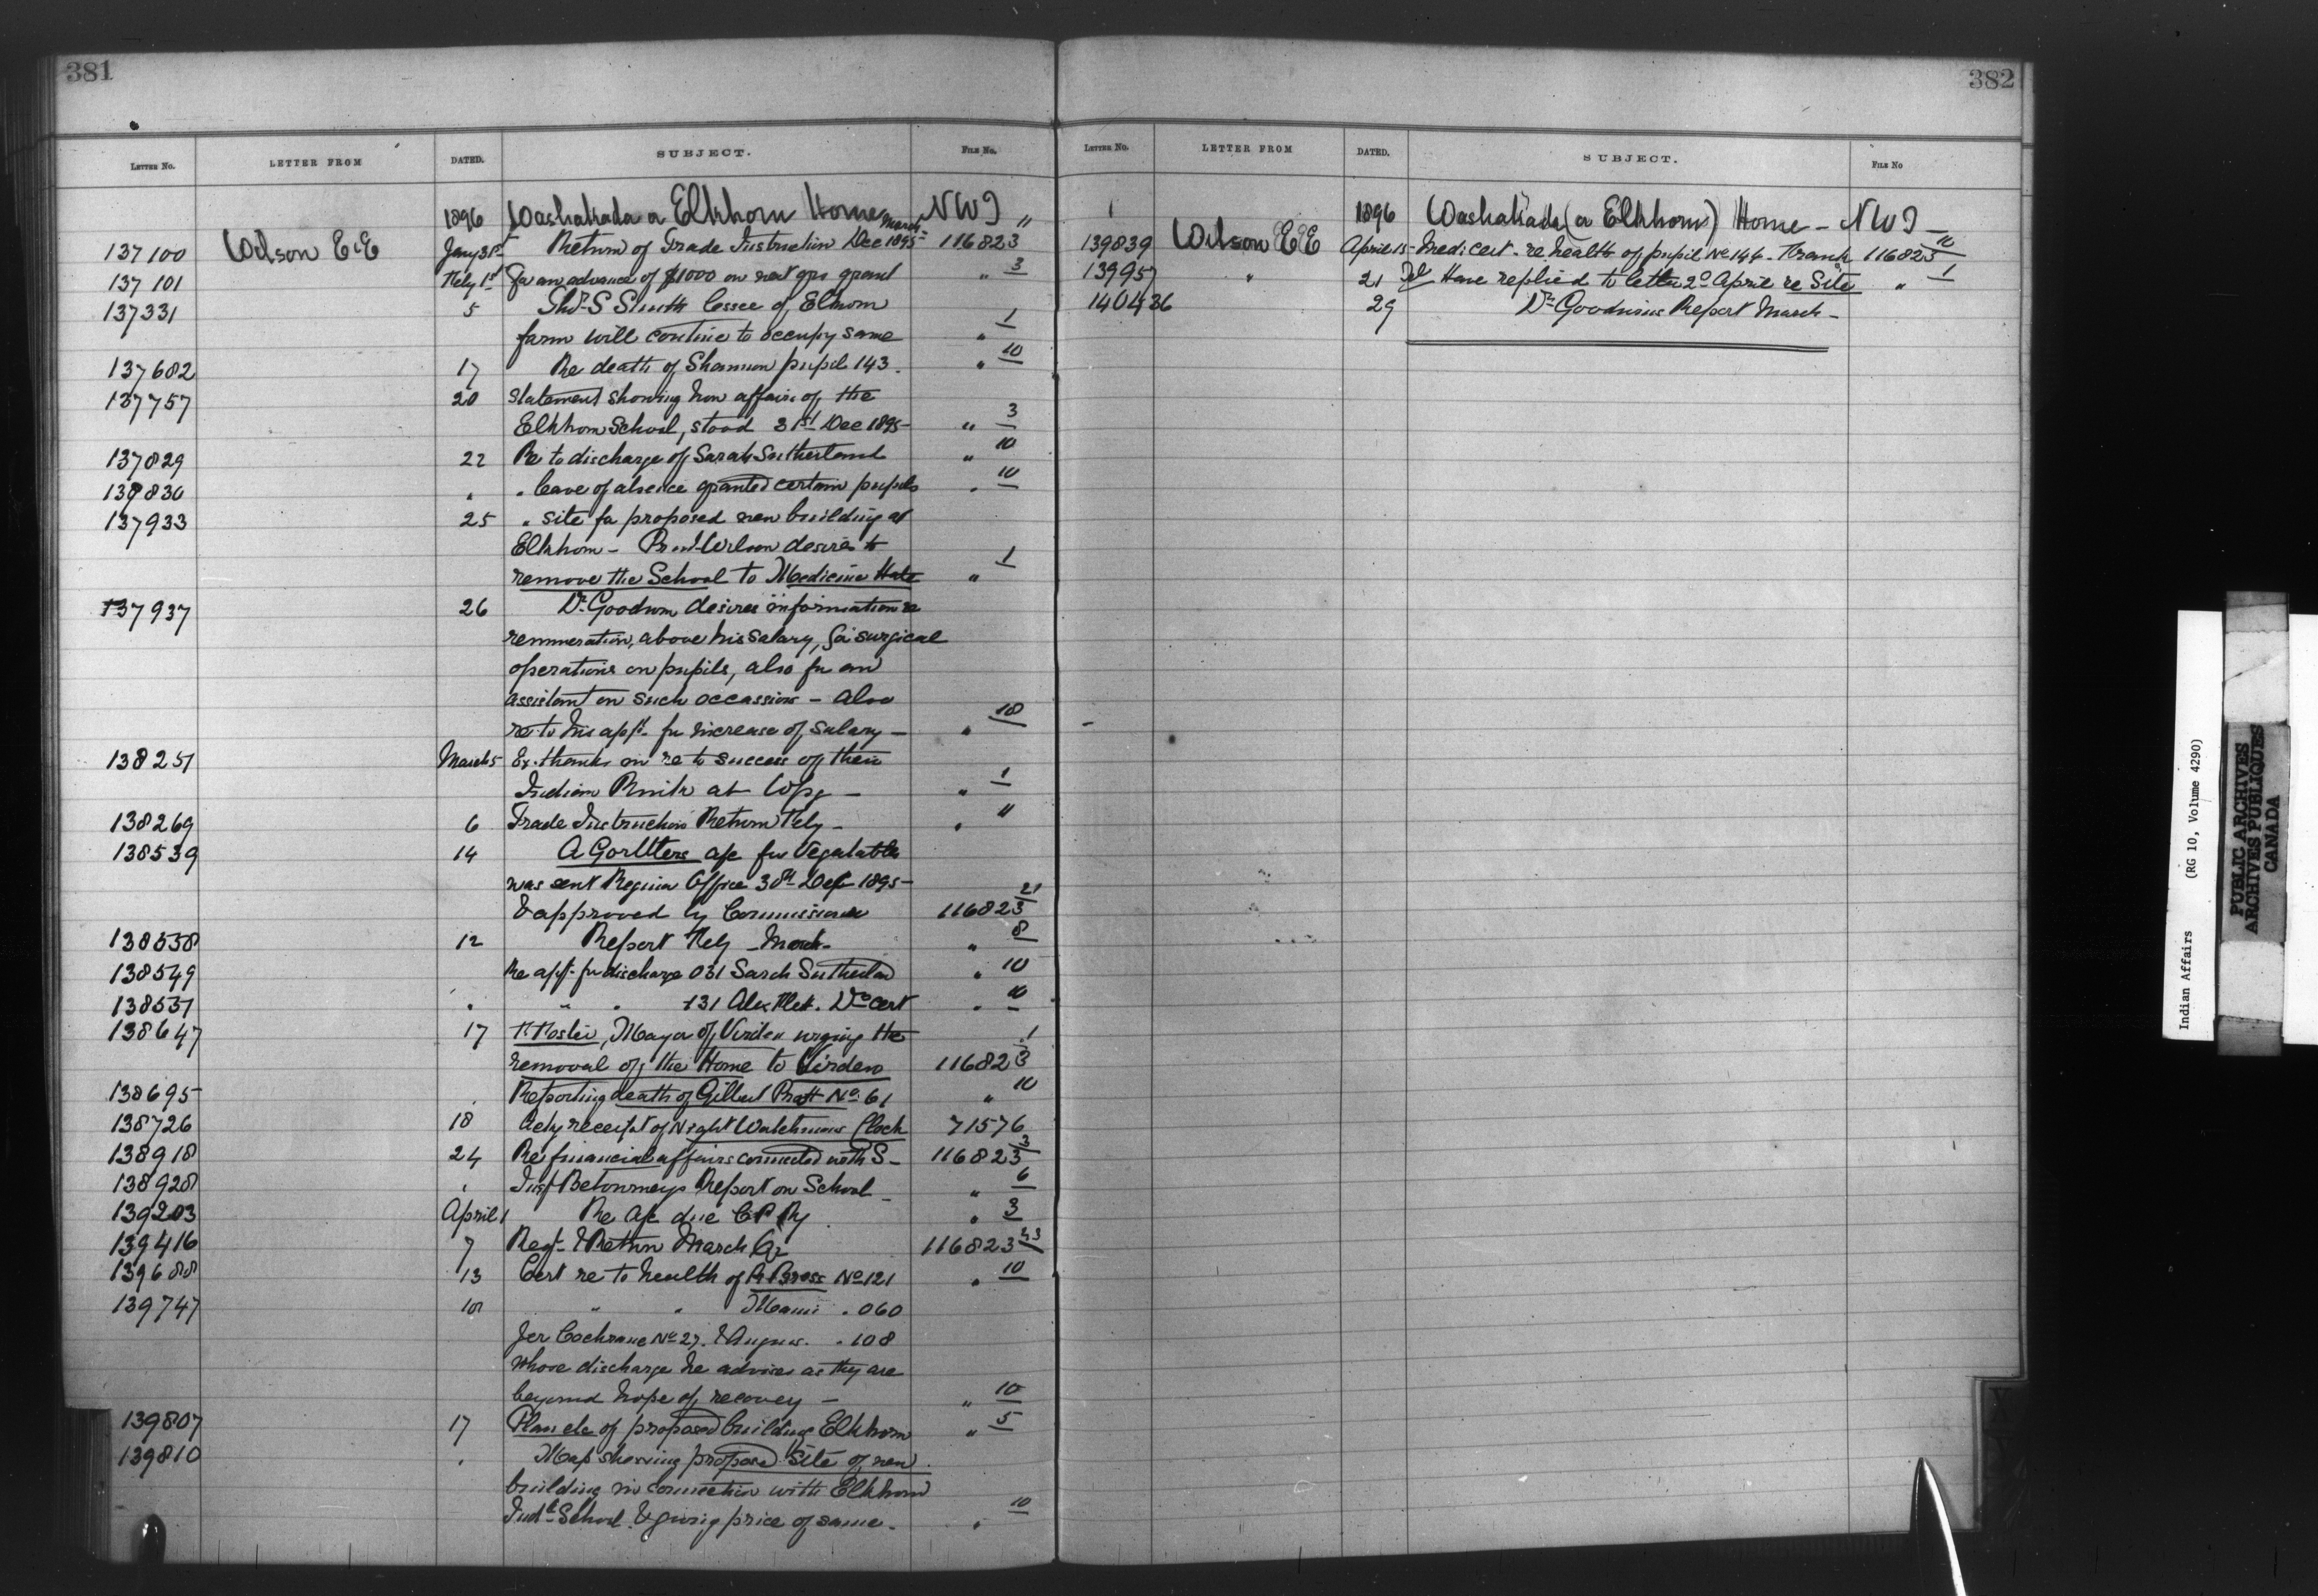 381
LETTER NO. LETTER FROM DATED. SUBJECT. FILE NO.
1896 Washakada or Elkhorn Home NWT
137100 Wilson E&E Jany 31st Return of Trade Instruction Dec 1895- March 116823 11
137101 Feby 1st for an advance of $1000 on next grs grant " 3
137331 5 Thos S Smith lessee of Elkhorn
farm will continue to occupy same " 1
137682 17 Re death of Shannon pupil 143. " 10
137757 20 Statement showing how affairs of the
Elkhorn School, stood 31st Dec 1895- " 3
137829 22 Re to discharge of Sarah Sutherland " 10
137830 " " leave of absence granted certain pupils " 10
137933 25 " site for proposed new building at
Elkhorn - Wilson desires to
remove the School to Medicine Hat " 1
137937 26 Dr. Goodwin desires information re
remuneration, above his salary, for surgical
operations on pupils, also for an
assistant on such occassions - also
re to his appn for increase of salary - " 10
138251 March 5 Ex. thanks on re to success of their
Indian at Wpg - " 1
138269 6 Trade Instruction Return Feby - " 11
138539 14 A Gorltters a/c for Vegatables
was sent Regina Office 30th 1895-
& approved by Commissioner 116823 21
138538 12 Report Feby - March - " 8
138549 Re appn for discharge 031 Sarah Sutherland " 10
138551 " " " 131 Alex Dr cert " 10
138647 17 Mayor of Virden urging the
removal of the Home to Virden 116823 1
138695 " Reporting death of Gilbert Pratt No 61 " 10
138726 18 Ackg receipt of Night Watchmans Clock 71576
138918 24 Re financial affairs connected with S- 116823 3
138928 " Insp Betournays Report on School - " 6
139203 April 1 Re a/c due C P Ry " 3
139416 7 Reqn & Return March Qr 116823 23
139688 13 Cert re to health of R Bross No 121 " 10
139747 10 " " " 060
Jer Cochrane No 27. & Angus. " 108
whose discharge he advises as they are
beyond hope of recovery - " 10
139807 17 Plan etc of proposed building Elkhorn " 5
139810 " Map showing proposed site of new
building in connection with Elkhorn
Indl School & giving price of same - " 10
382
LETTER NO. LETTER FROM DATED. SUBJECT. FILE NO
1896 Washakada (or Elkhorn) Home - NWT -
139839 Wilson E&E April 15- Medi cert - re health of pupil No 144 - 116823 10
139957 " 21 Tel Have replied to letter 20 April re Site " 1
140436 29 Dr Goodwins Report March -
Indian Affairs (RG 10, Volume 4290)
PUBLIC ARCHIVES
ARCHIVES PUBLIQUES
CANADA